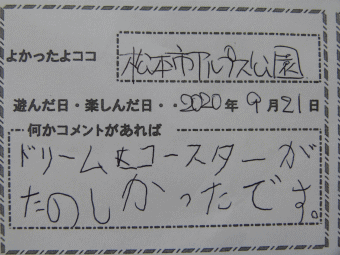 よかったよココ 松本市アルプス公園
遊んだ日・楽しんだ日・・2020年9月21日
何かコメントがあれば
ドリームコースターが
たのしかったです。